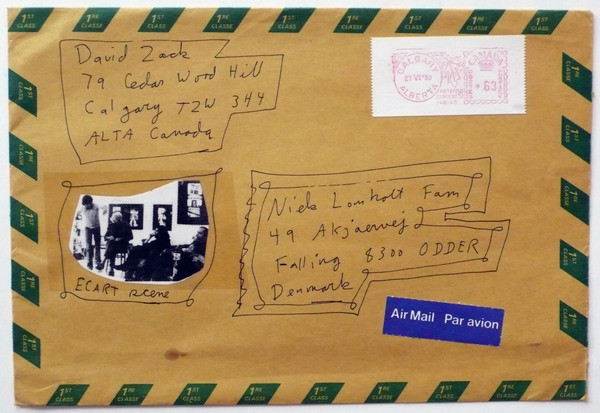 1ST CLASS 1RE CLASSE 1ST CLASS 1RE CLASSE 1ST CLASS 1RE CLASSE 1ST CLASS
David Zack
79 Cedar Wood Hill
Calgary T2W 3H4
ALTA Canada
CALGARY
ALBERTA
CANADA
63
ECART scene
Niels Lomholt Fam
49 Akjaervej
Falling 8300 ODDER
Denmark
Air Mail Par avion
1ST CLASS 1RE CLASSE 1ST CLASS 1RE CLASSE 1ST CLASS 1RE CLASSE 1ST CLASS 1RE CLASSE